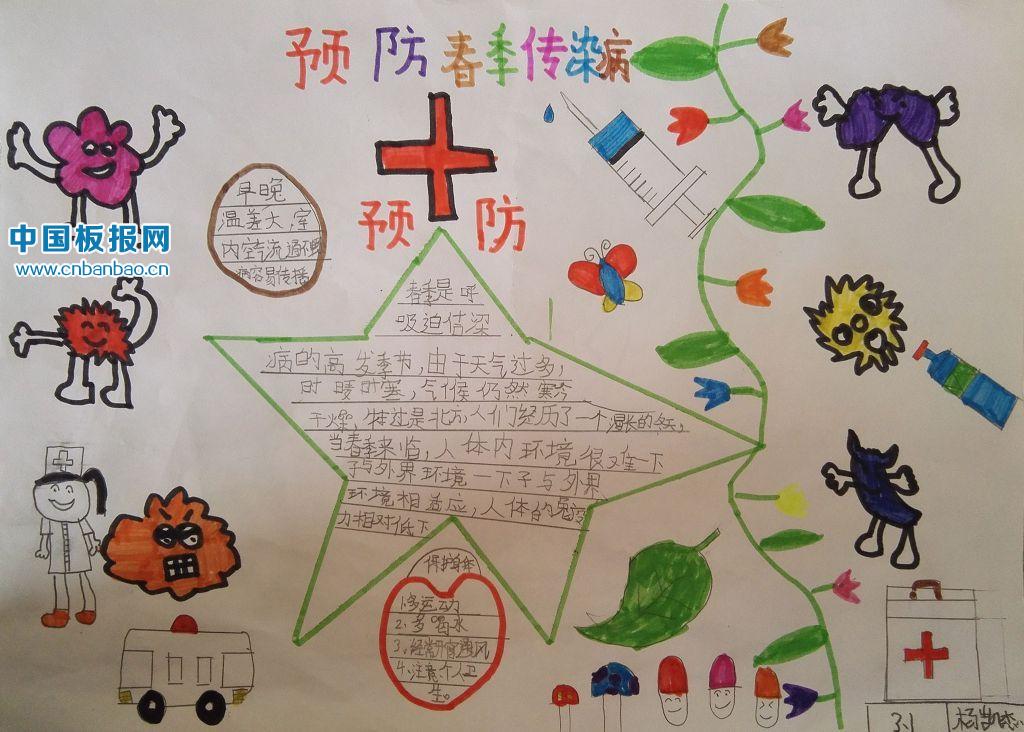 预防春季传染病
预 防
早晚
温差大,室
内空气流通不畅
病容易传播
春季是呼
吸迫倍深
病的高发季节,由于天气过多,
时暖时塞,气候仍然寒冷
干燥,特过是北方人们经历了一个漫长的冬天,
当春季来临,人体内环境很难一下
子与外界环境一下子与外界
环境相适应,人体的免疫
力相对低下
保护身体
1.多运动
2、多喝水
3、经常开窗通风
4、注意个人卫
生。
中国板报网
www.cnbanbao.cn
3.1